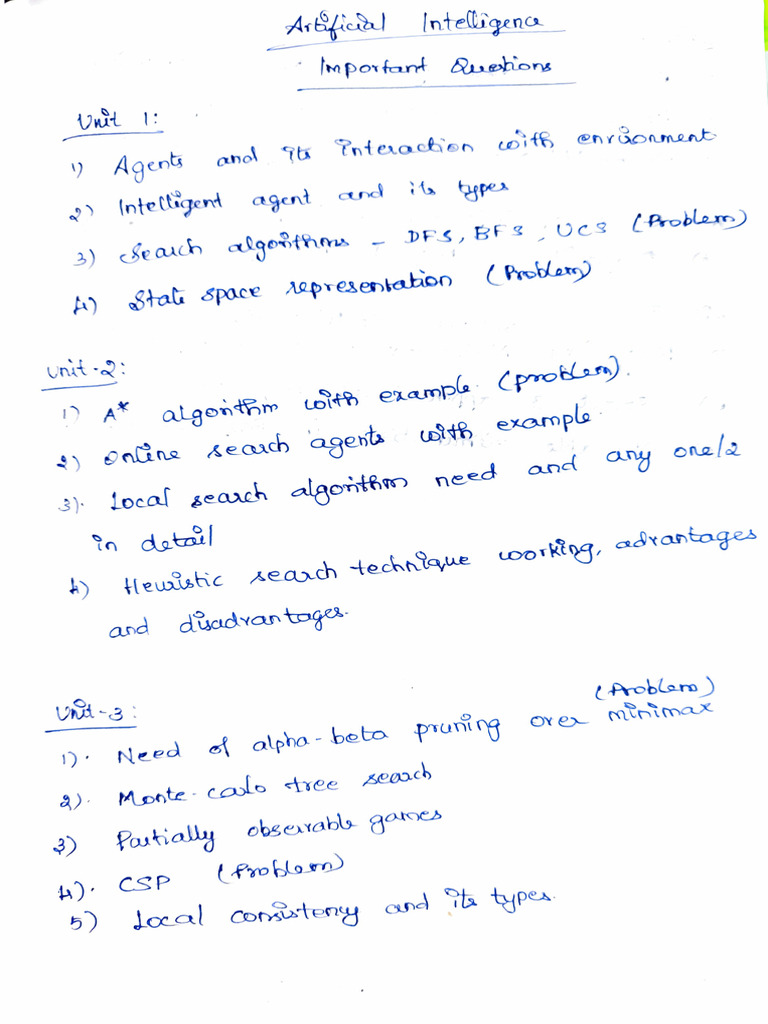 Artificial Intelligence
Important Questions
Unit 1:
1) Agents and its interaction with environment
2) Intelligent agent and its types
3) Search algorithms - DFS, BFS, UCS (Problem)
4) State space representation (Problem)
Unit-2:
1) A* algorithm with example. (problem).
2) Online search agents with example.
3). Local search algorithm need and any one/2
in detail
4) Heuristic search technique working, advantages
and disadvantages.
Unit-3:
(Problem)
1). Need of alpha-beta pruning over minimax
2). Monte-carlo tree search
3) Partially observable games
4). CSP (Problem)
5) Local consistency and its types.